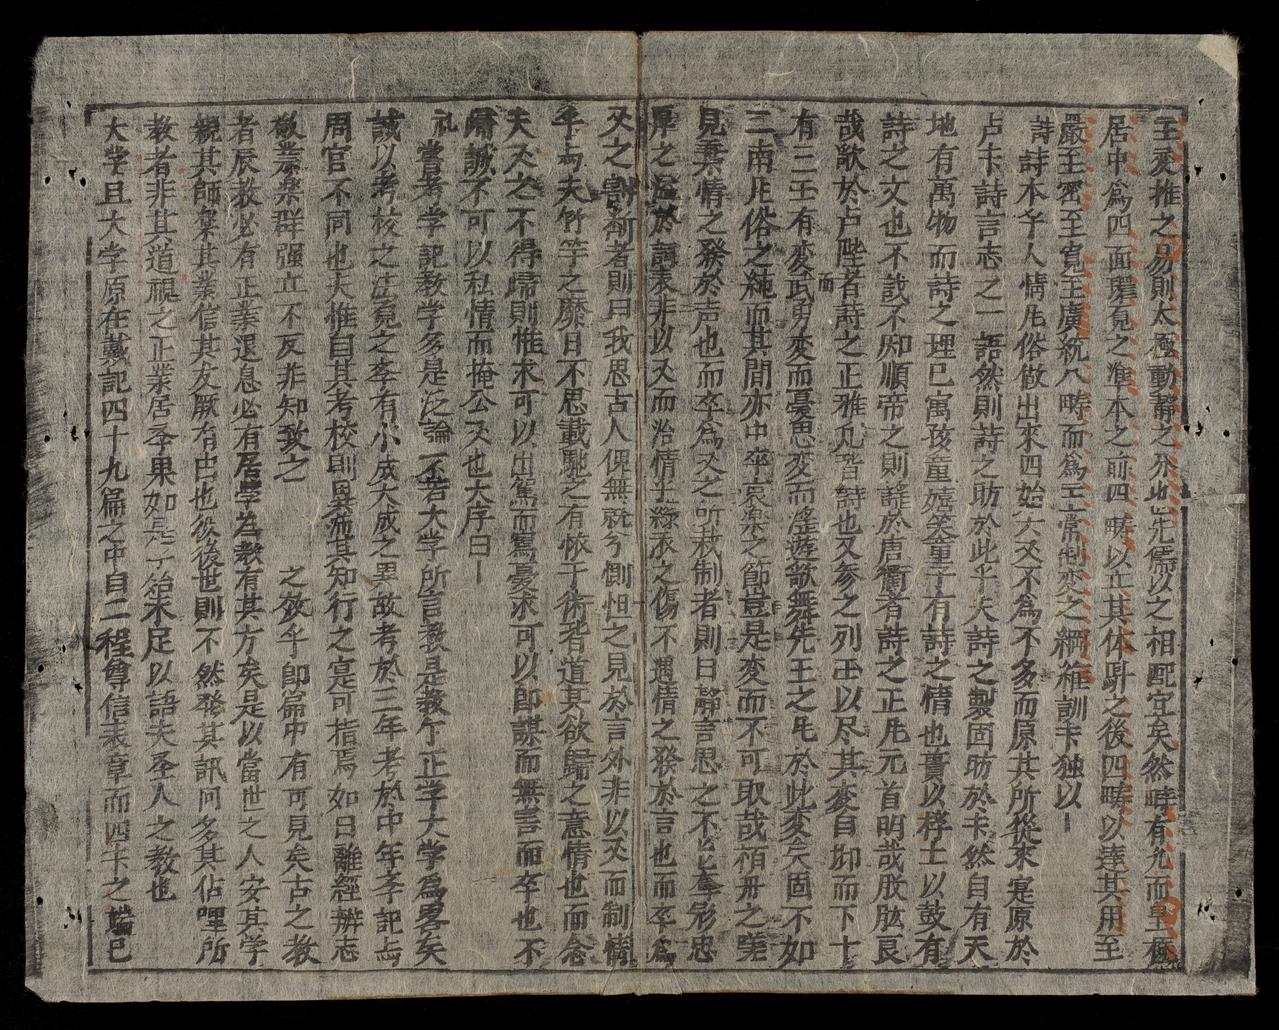 主変推之易則太極動靜之分也先儒以之相配宜矣然疇有九而皇極
居中爲四面環覔之準本之前四疇以立其体之後四疇以達其用至
嚴至密至寛至廣統八疇而爲主常制変之綱維訓卡独以
詩詩本乎人情凡俗做出來四始六义不爲不多而原其所從來寔原於
卢卡詩言志之一語然則詩之昉於此乎夫詩之製固昉於卡然自有天
地有萬物而詩之理已寓孩童嬉笑童子有詩之情也蕢以桴土以鼓有
詩之文也不戠不知順帝之則謠於唐衢者詩之正凡元首明哉股肱良
哉歌於卢陛者詩之正雅凡皆詩也又参之列王以尽其変自邶而下十
有三王有変武勇変而憂思変而淫遊歌舞先王之凡於此変矣固不如
二南凡俗之純而其間亦中卒哀楽之節豈是変而不可取哉栢舟之
見棄情之發於声也而卒爲义之所裁制者則曰靜言思之不奮飛忠
厚之溢於詞表非以义而治情乎綠衣之傷不遇情之發於言也而卒爲
义之制者則曰我思古人俾無訧兮惻怛之見於言外非以义而制情
乎与夫竹竿之靡日不思載馳之有懷于衛者道其欲歸之意情也而念
夫义之不得歸則惟求可以出駕而寫憂求可以即謀而無言而卒也不
歸誠不可以私情而掩公义也大序曰
礼 嘗考学記教学多是泛論不若大学所言教是教个正学大学爲畧矣
誠以考校之法覔之李有小成大成之異故考於三年考於中年李記与
周官不同也夫惟自其考校則異而其知行之寔可指焉如曰離經辨志
敬業楽群強立不反非知致之 之效乎即篇中有可見矣古之教
者辰教必有正業退息必有居学为教有其方矣是以當世之人安其学
親其師楽其業信其友厥有由也後後世則不然發其訊问多其佔嗶所
教者非其道視之正業居李果如是乎殆不足以語夫圣人之教也
大学且大学原在戴記四十九篇之中自二程尊信表章而四卡之端已